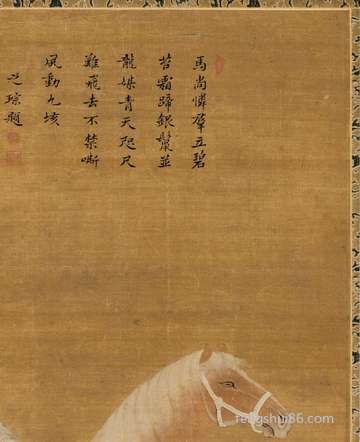 馬尚憐群立碧
苔霜蹄銀鬣並
龍媒青天咫尺
難飛去不禁嘶
風動九垓
之琮題
fengshui86.com